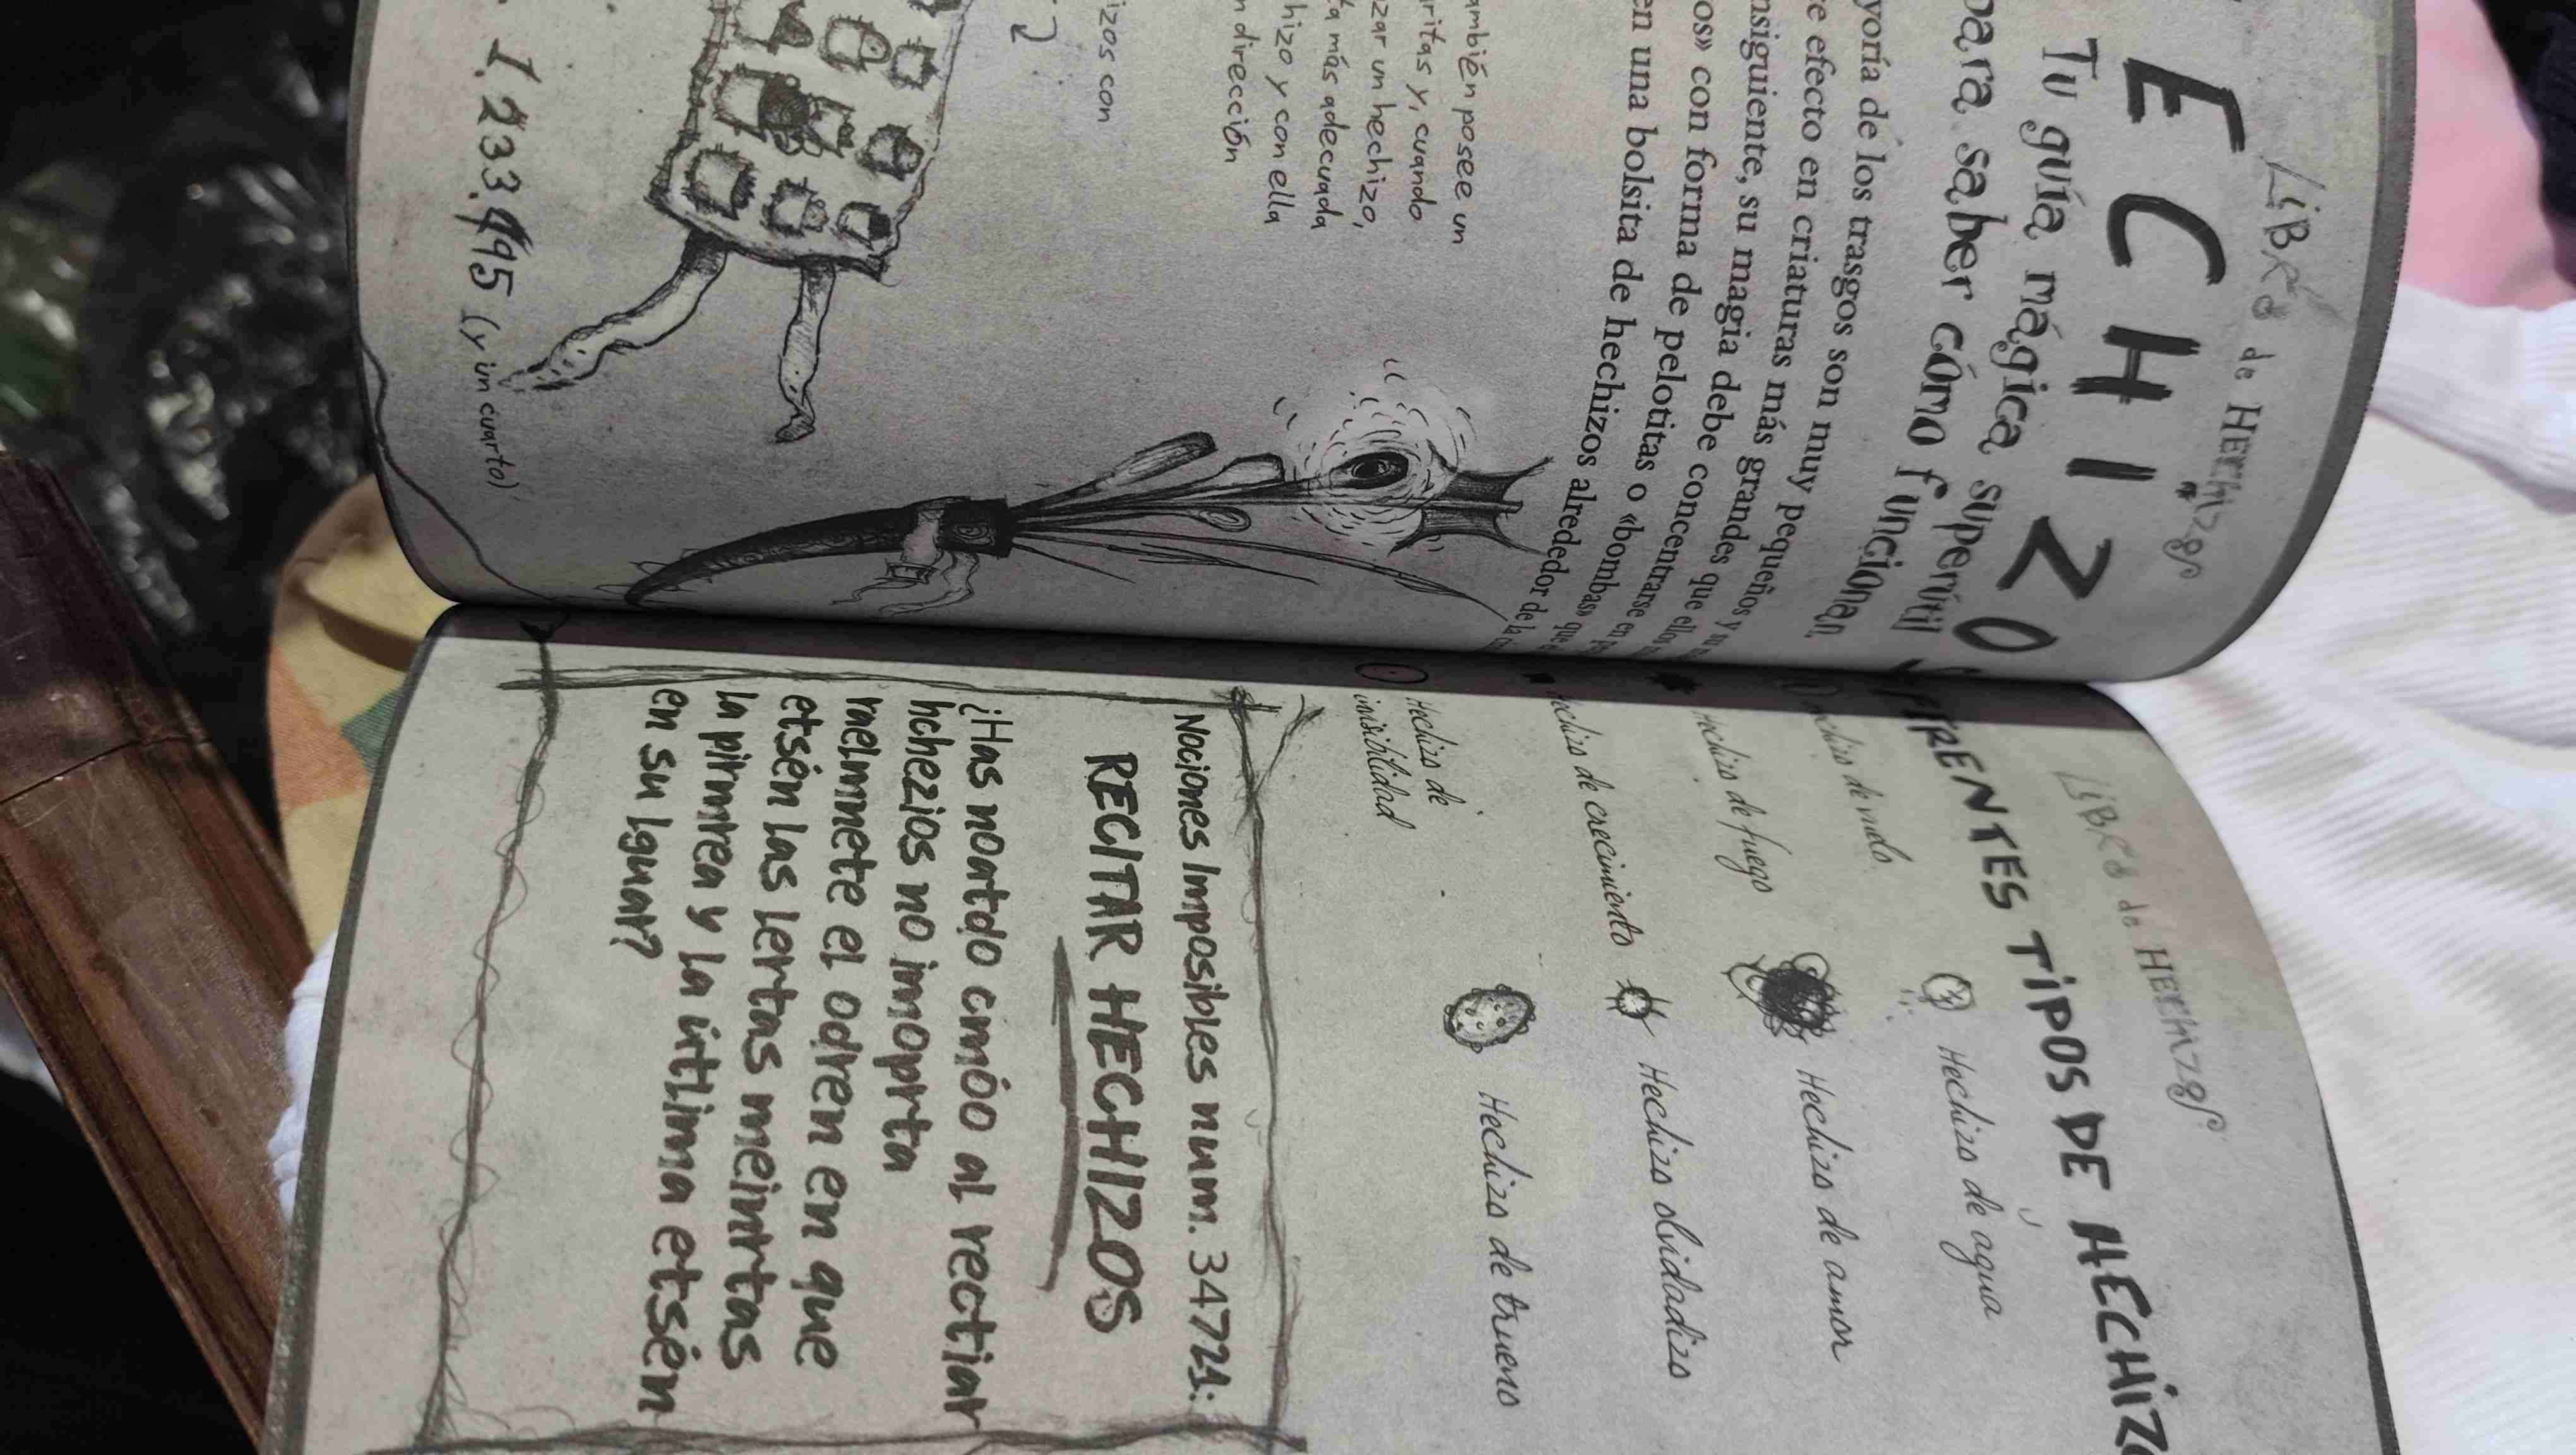 LiBRo de HEcHizos
ECHIZO
Tu guía mágica superútil
para saber cómo funcionan
yoría de los trasgos son muy pequeños y su
e efecto en criaturas más grandes que ellos
nsiguiente, su magia debe concentrarse en
os» con forma de pelotitas o «bombas» que
en una bolsita de hechizos alrededor de la
ambién posee un
ritas y, cuando
zar un hechizo,
ta más adecuada
hizo y con ella
n dirección
izos con
1.233.995 (y un cuarto)
LiBRo de HEcHizos
TIPOS DE HECHIZO
Hechizo de agua
Hechizo de fuego
Hechizo de amor
Hechizo de crecimiento
Hechizo olvidadizo
Hechizo de
invisibilidad
Hechizo de trueno
Nociones Imposibles num. 34721:
RECITAR HECHIZOS
¿Has noatdo cmóo al rectiar
hchezios no imoprta
raelmnete el odren en que
etsén las lertas meintras
la pirmrea y la útlima etsén
en su lguar?